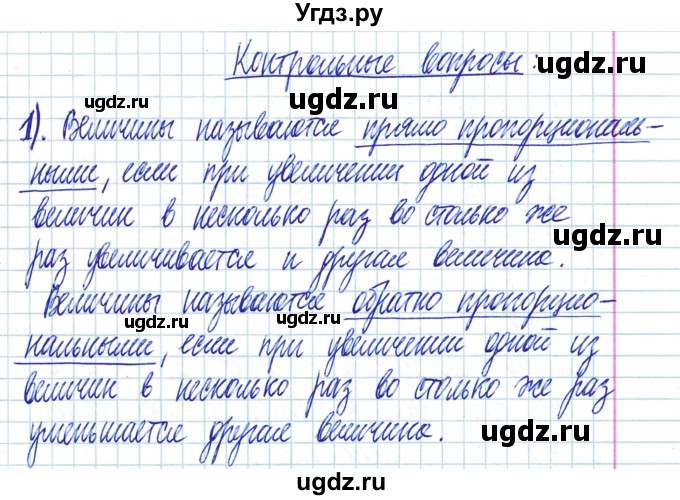 Угдз.ру
Контрольные вопросы:
1). Величины называются прямо пропорциональ-
ными, если при увеличении одной из
величин в несколько раз во столько же
раз увеличивается и другая величина.
Величины называются обратно пропорцио-
нальными, если при увеличении одной из
величин в несколько раз во столько же раз
уменьшается другая величина.
udgz.ru
udgz.ru
udgz.ru
udgz.ru
udgz.ru
udgz.ru
udgz.ru
udgz.ru
udgz.ru